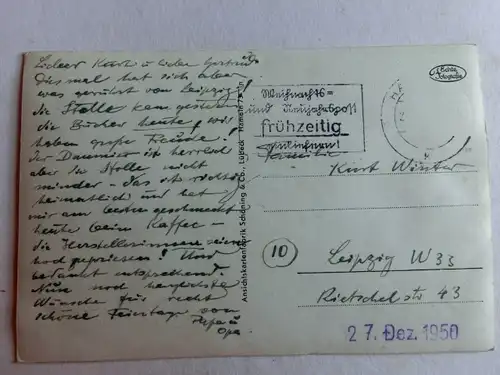 Lieber Kurt u. liebe Gertrud
Dies mal hat sich aber
was gerührt von Leipzig!
die Stolle kam gestern
die Bücher heute! wir
haben große Freude!
Der Daumier ist herrlich
aber die Stolle nicht
minder - das ist richtig
heimatlich und hat
mir am besten geschmeckt
heute beim Kaffee -
die Herstellerinnen seien
hoch gepriesen! Und
bedankt entsprechend.
Nun noch herzlichste
Wünsche für recht
schöne Feiertage von
Papa u
Opa
Ansichtskartenfabrik Schöning & Co., Lübeck
Hameln
Weihnachts-
und Neujahrspost
frühzeitig
einliefern!
Echte
Fotografie
Familie
Kurt Winter
10
Leipzig W 33
Rietschelstr 43
27. Dez. 1950